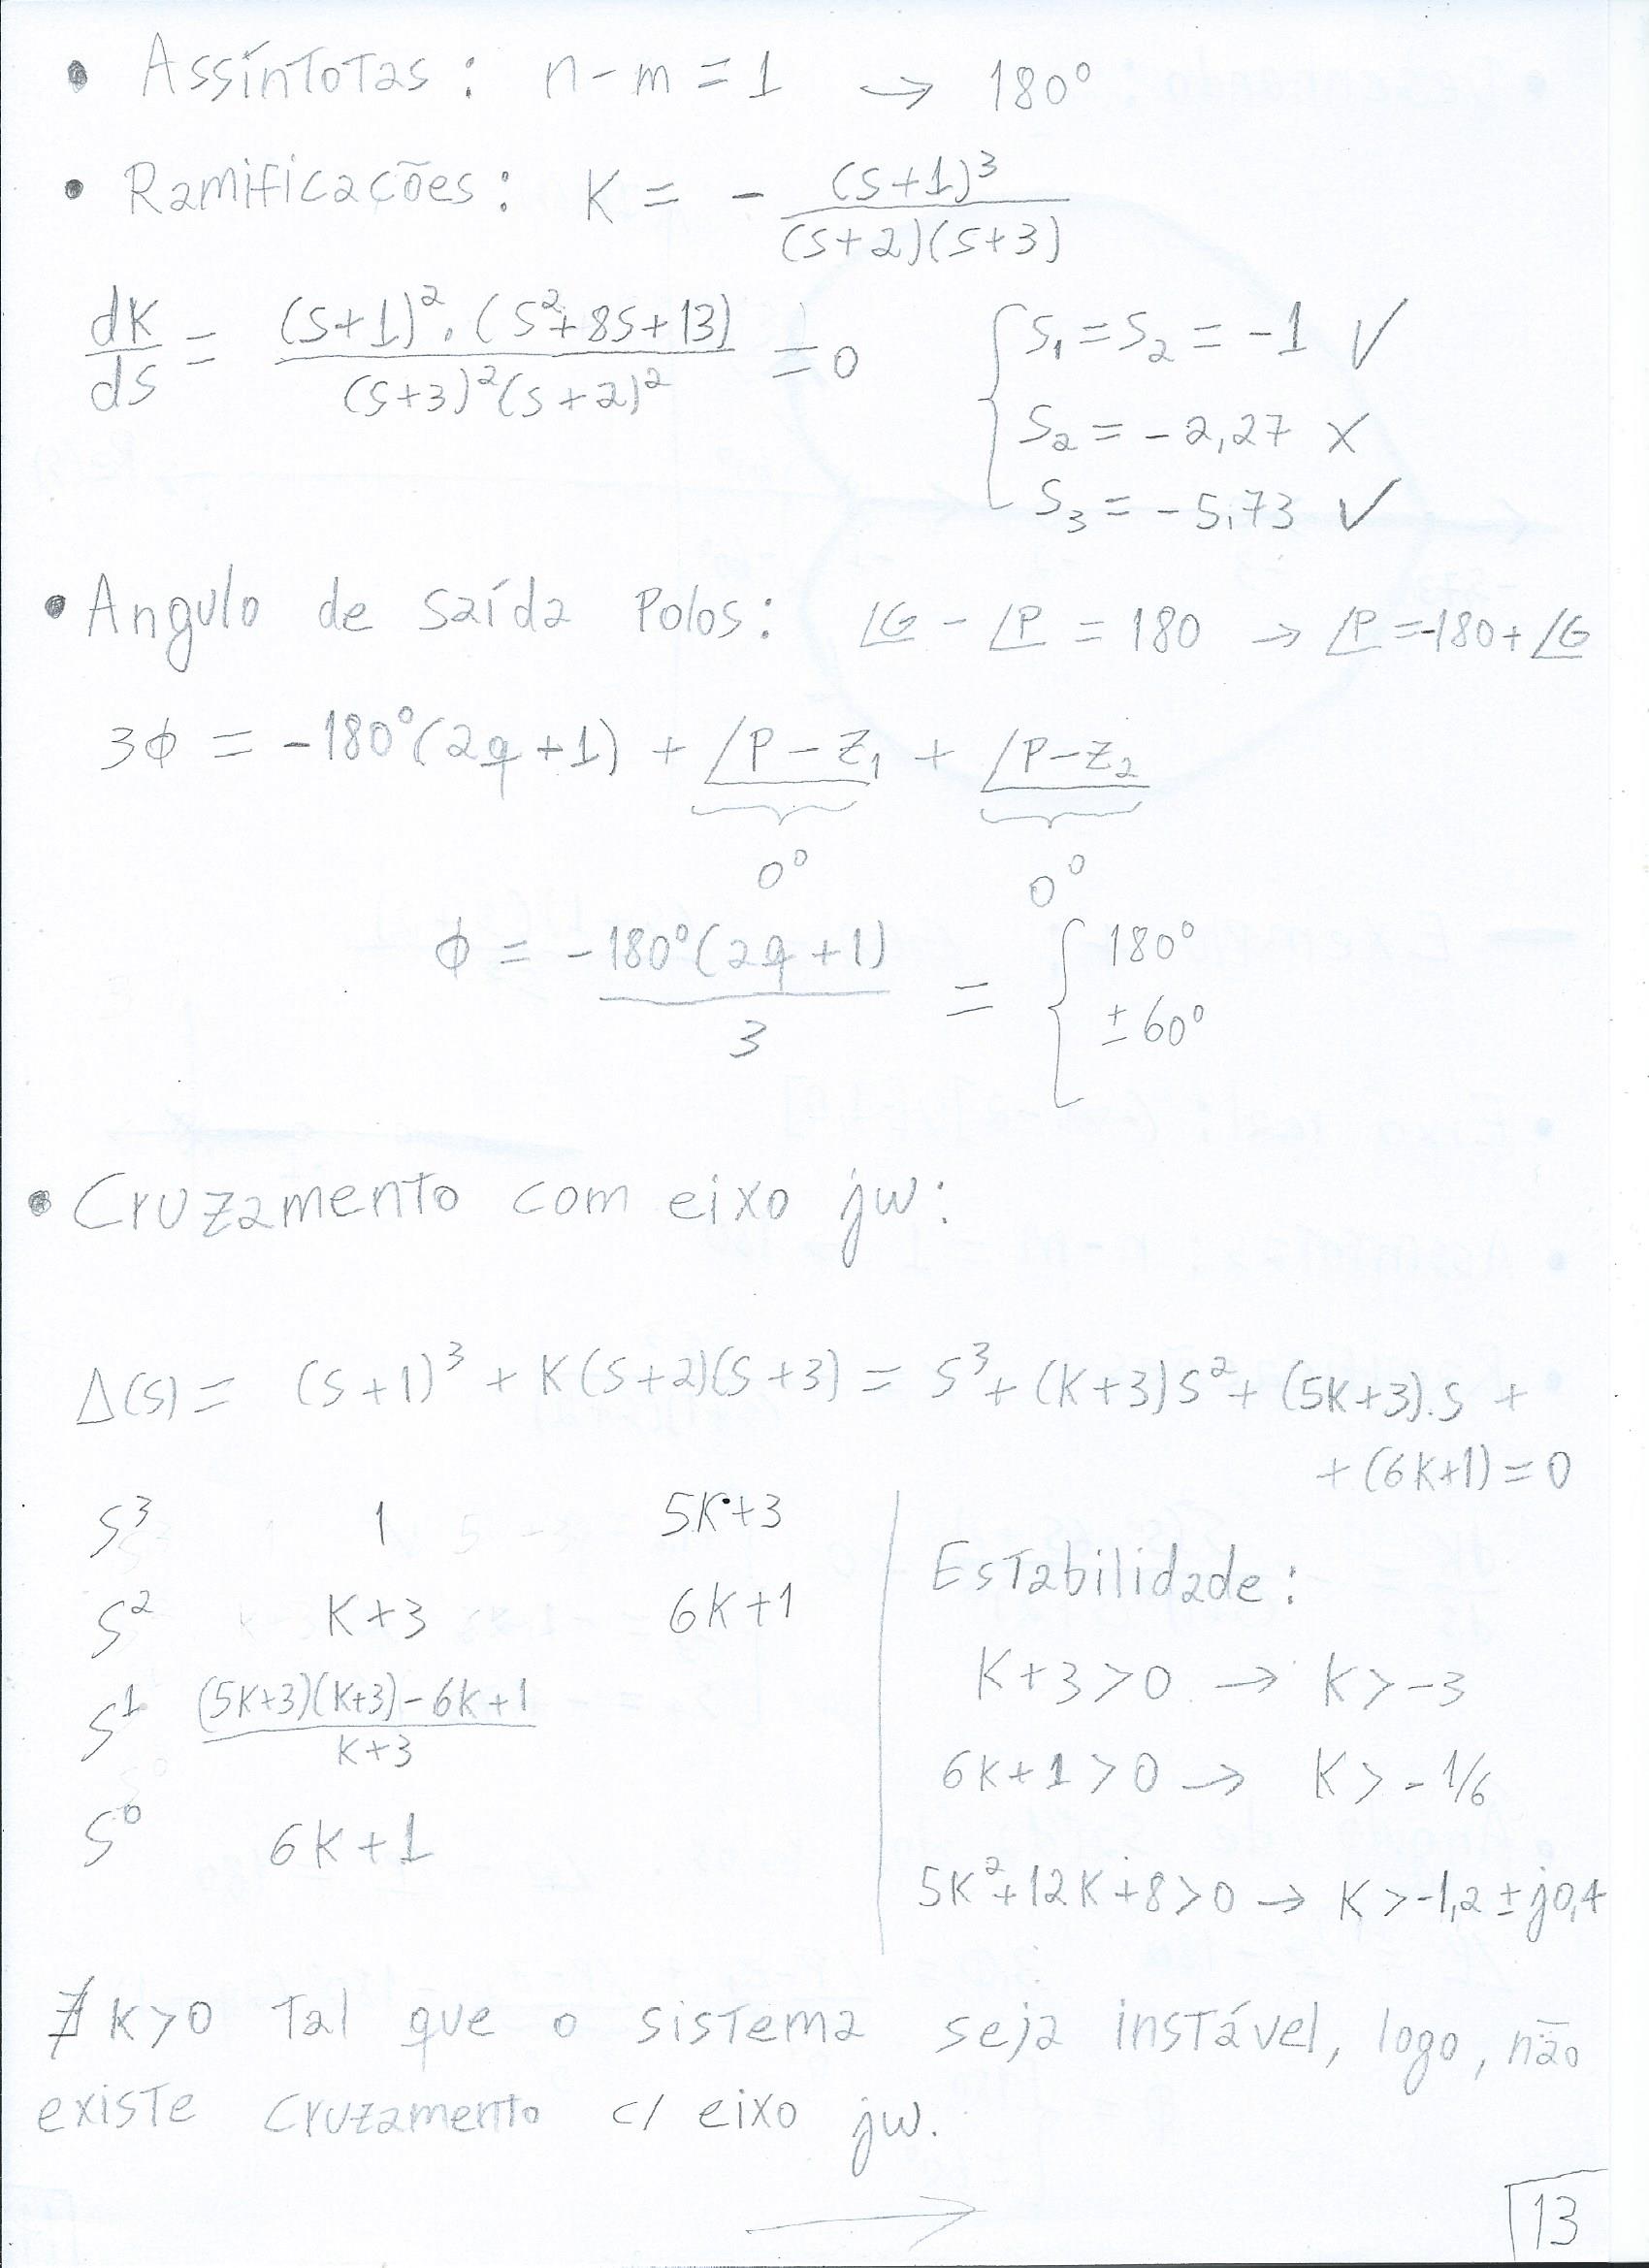 • Assíntotas: n-m=1 → 180°
• Ramificacões: K = - (s+1)³ / (s+2)(s+3)
dK/ds = (s+1)².(s²+8s+13) / (s+3)²(s+2)² = 0 { s₁=s₂=-1 ✓
s₂=-2,27 x
s₃=-5,73 ✓
• Angulo de saída Polos: ∠G - ∠P = 180 → ∠P =-180+∠G
3ϕ = -180°(2q+1) + ∠P-Z₁ + ∠P-Z₂
0° 0°
ϕ = -180°(2q+1) / 3 = { 180°
±60°
• Cruzamento com eixo jw:
Δ(s) = (s+1)³ + K(s+2)(s+3) = s³+(K+3)s²+(5K+3).s +
+(6K+1)=0
s³ 1 5K+3
s² K+3 6K+1
s¹ (5K+3)(K+3)-6K+1 / K+3
s⁰ 6K+1
Estabilidade:
K+3>0 → K>-3
6K+1>0 → K>-1/6
5K²+12K+8>0 → K>-1,2±j0,4
∄ K>0 Tal que o sistema seja instável, logo, não
existe cruzamento c/ eixo jw.
→
13